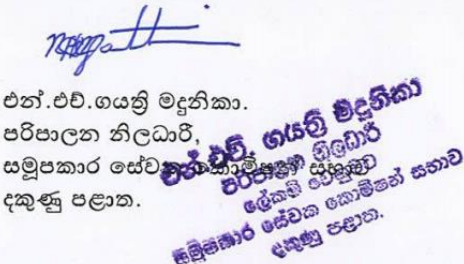 එන්.එච්.ගයත්‍රි මදුනිකා.
පරිපාලන නිලධාරී,
සමූපකාර සේවක කොමිෂන් සභාව
දකුණු පළාත.
එන්.එච්. ගයත්‍රි මදුනිකා
පරිපාලන නිලධාරී
ලේකම් වෙනුවට
සමූපකාර සේවක කොමිෂන් සභාව
දකුණු පළාත.